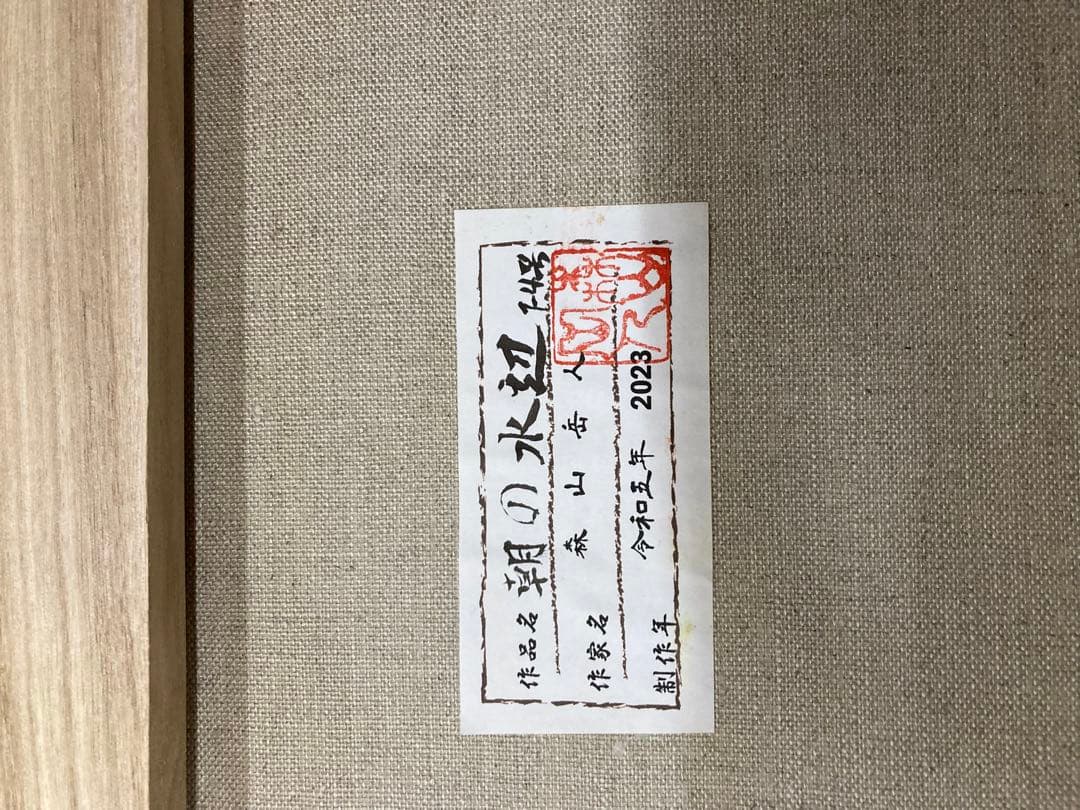 作品名 朝の水辺 F4号
作家名 森山岳人
制作年 令和五年 2023